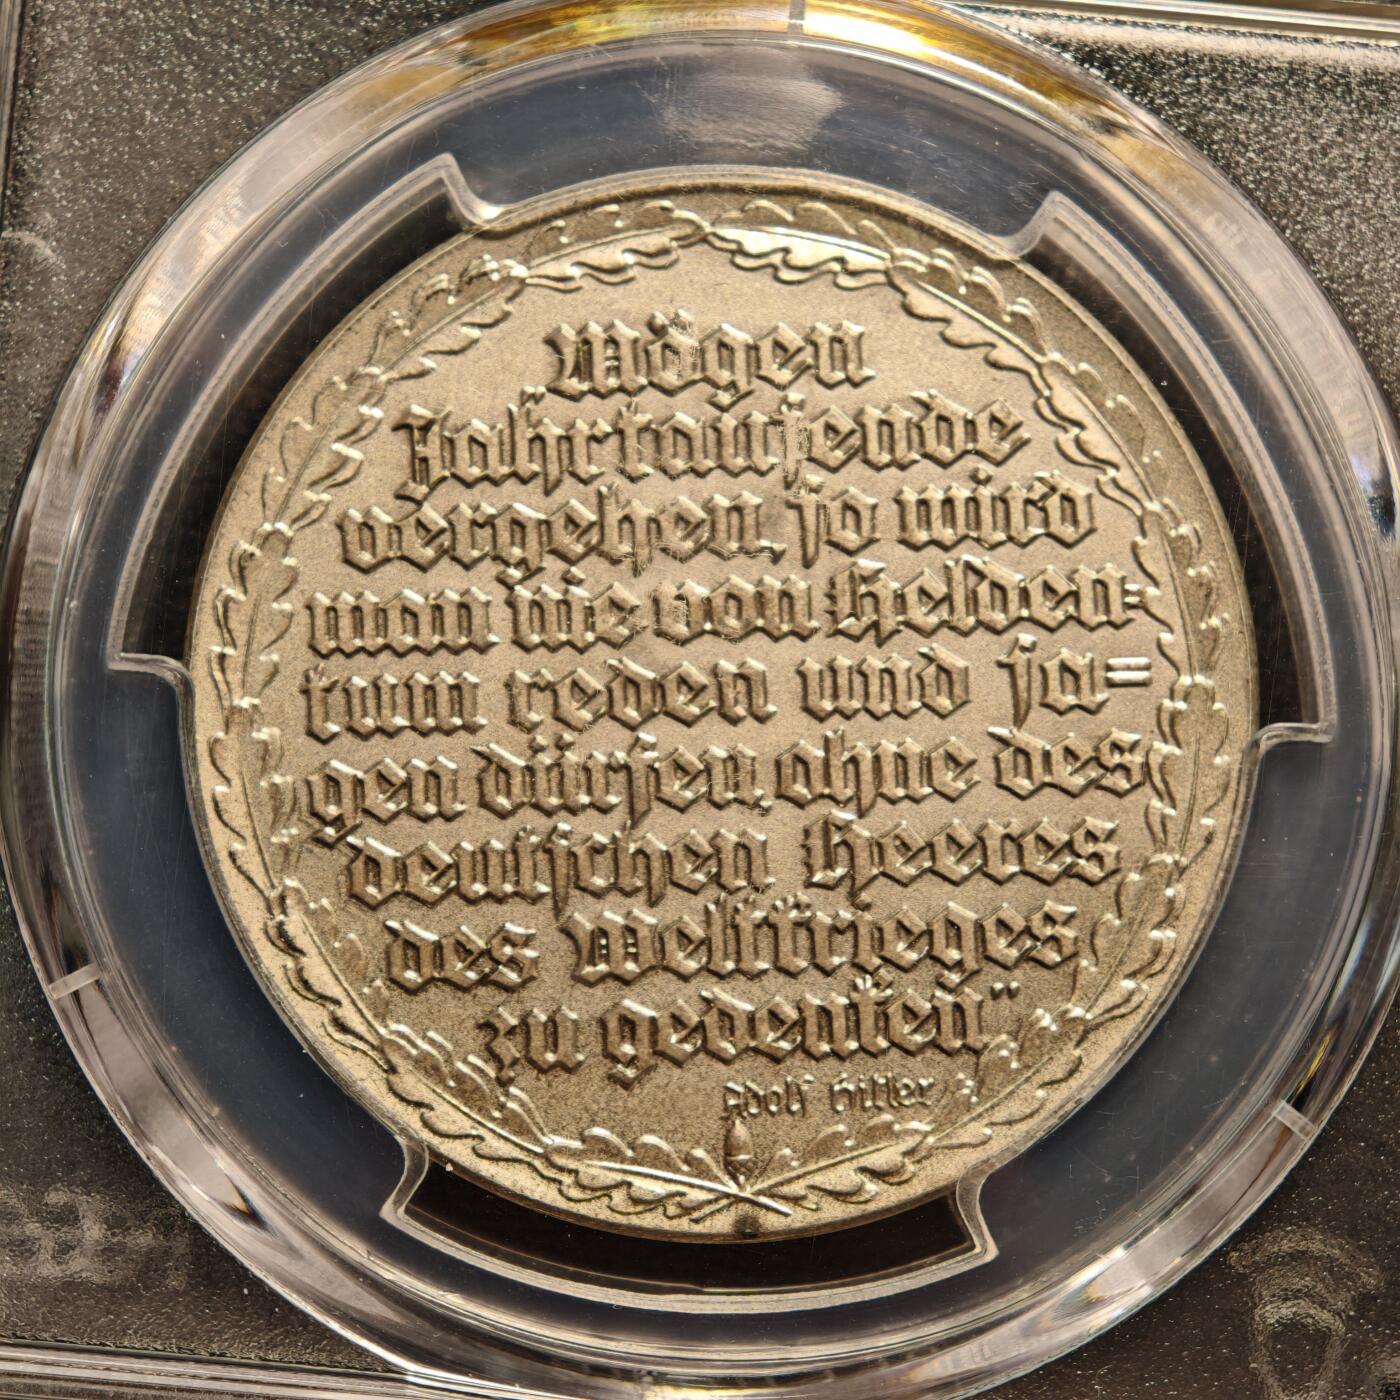 „Mögen
Jahrtausende
vergehen, so wird
man nie von Helden=
tum reden und sa=
gen dürfen, ohne des
deutschen Heeres
des Weltkrieges
zu gedenken“
Adolf Hitler